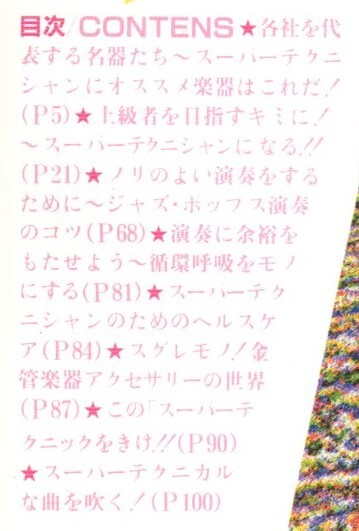 目次/CONTENS★各社を代
表する名器たち〜スーパーテクニ
シャンにオススメ楽器はこれだ!
(P5)★上級者を目指すキミに!
〜スーパーテクニシャンになる!!
(P21)★ノリのよい演奏をする
ために〜ジャズ・ポップス演奏
のコツ(P68)★演奏に余裕を
もたせよう〜循環呼吸をモノ
にする(P81)★スーパーテク
ニシャンのためのヘルスケ
ア(P84)★スグレモノ!金
管楽器アクセサリーの世界
(P87)★この「スーパーテ
クニックをきけ!!(P90)
★スーパーテクニカル
な曲を吹く!(P100)